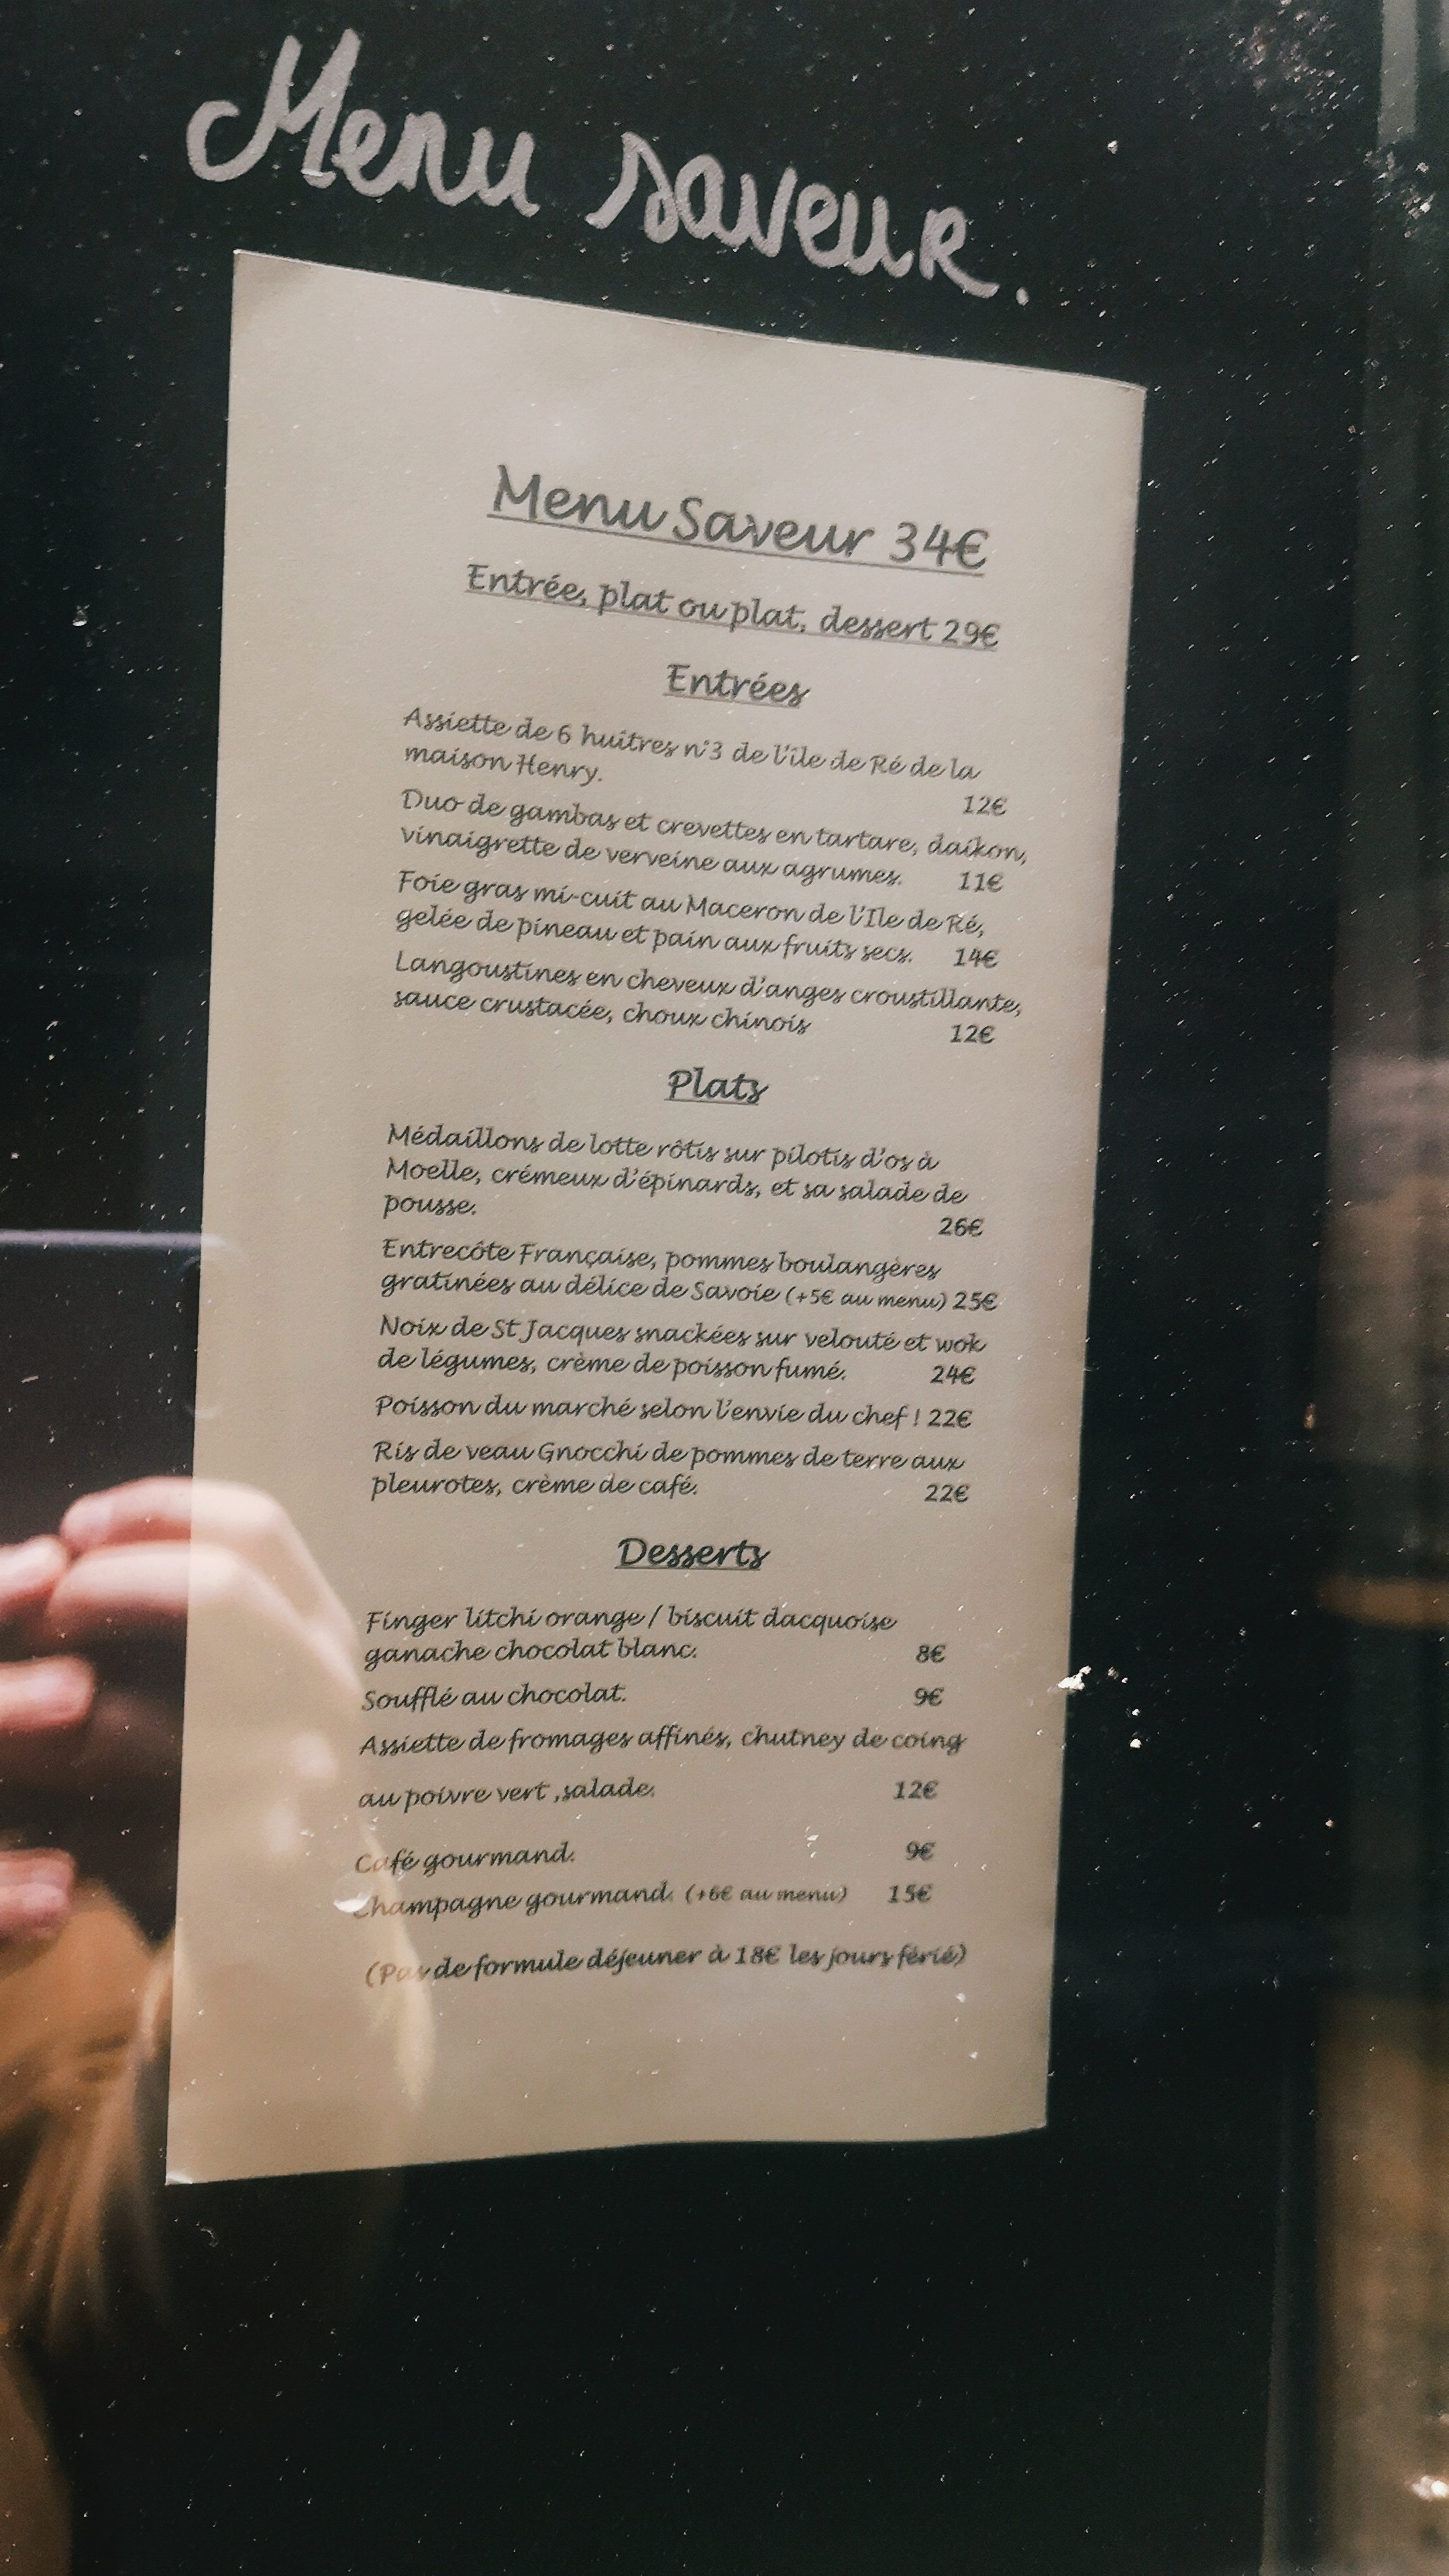 Menu saveur.
Menu Saveur 34€
Entrée, plat ou plat, dessert 29€
Entrées
Assiette de 6 huîtres n°3 de l'île de Ré de la
maison Henry.
12€
Duo de gambas et crevettes en tartare, daïkon,
vinaigrette de verveine aux agrumes. 11€
Foie gras mi-cuit au Maceron de l'Ile de Ré,
gelée de pineau et pain aux fruits secs. 14€
Langoustines en cheveux d'anges croustillante,
sauce crustacée, choux chinois 12€
Plats
Médaillons de lotte rôtis sur pilotis d'os à
Moelle, crémeux d'épinards, et sa salade de
pousse. 26€
Entrecôte Française, pommes boulangères
gratinées au délice de Savoie (+5€ au menu) 25€
Noix de St Jacques snackées sur velouté et wok
de légumes, crème de poisson fumé. 24€
Poisson du marché selon l'envie du chef ! 22€
Ris de veau Gnocchi de pommes de terre aux
pleurotes, crème de café. 22€
Desserts
Finger litchi orange / biscuit dacquoise
ganache chocolat blanc. 8€
Soufflé au chocolat. 9€
Assiette de fromages affinés, chutney de coing
au poivre vert ,salade. 12€
Café gourmand. 9€
Champagne gourmand. (+6€ au menu) 15€
(Pas de formule déjeuner à 18€ les jours férié)